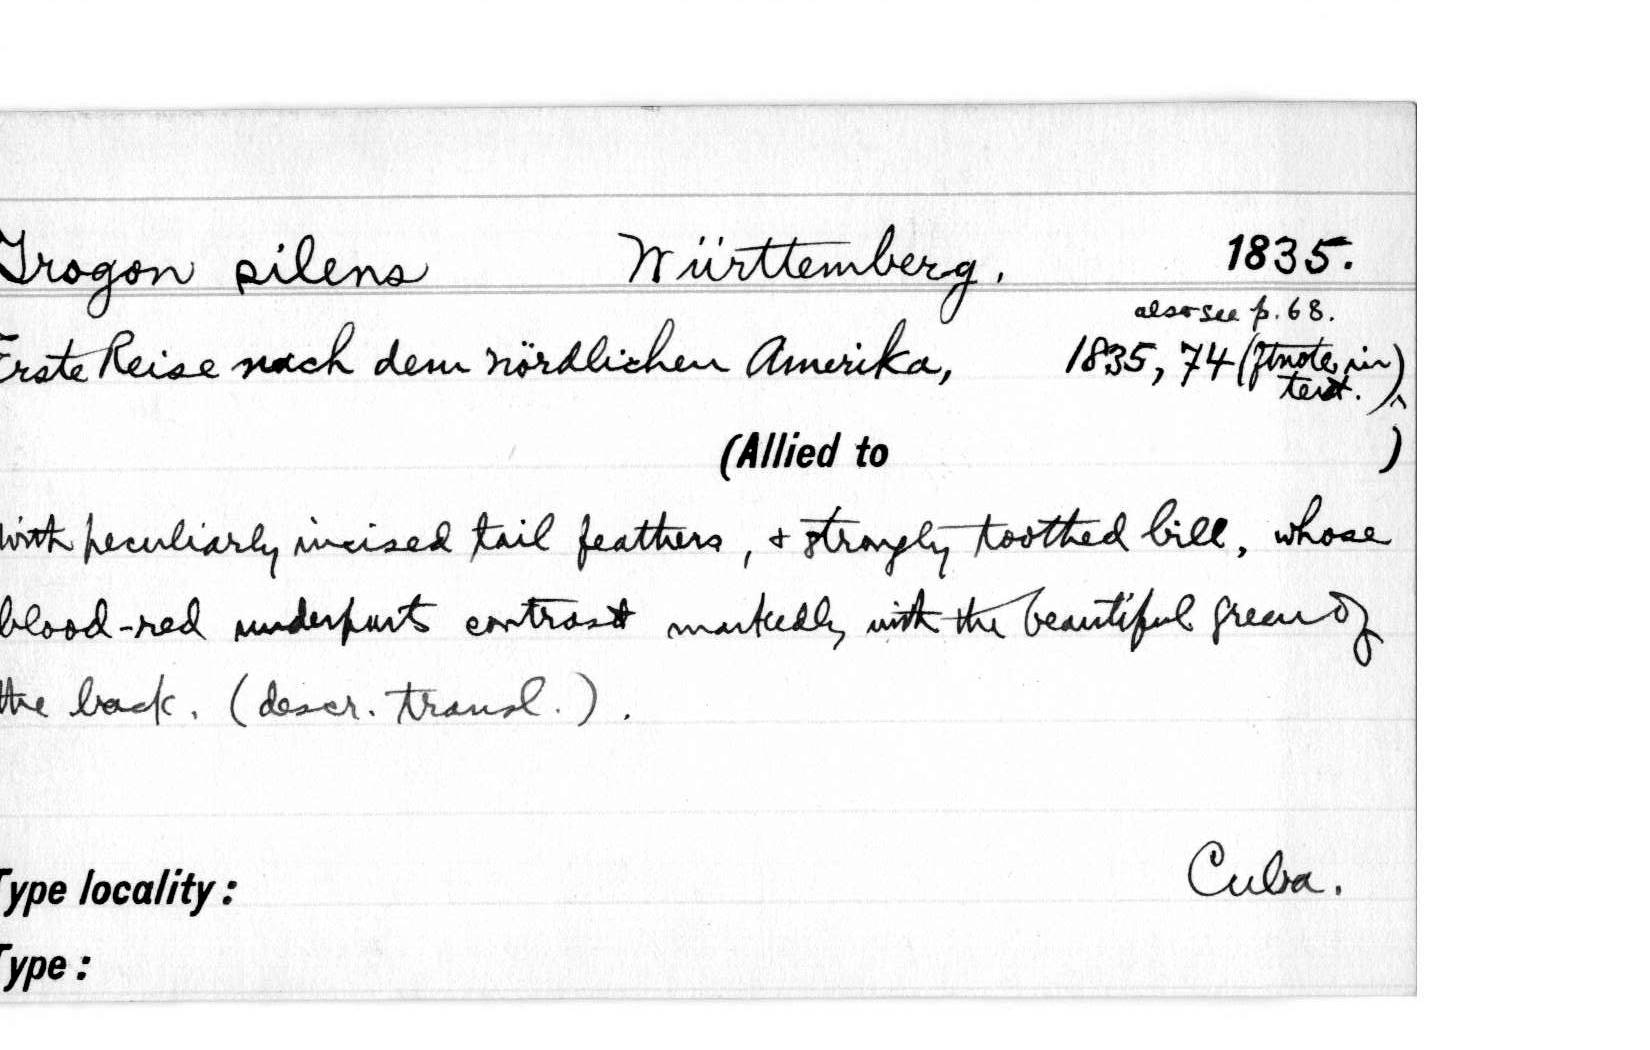 Trogon silens Württemberg. 1835.
also see p. 68.
Erste Reise nach dem nördlichen Amerika, 1835, 74 (ftnote, in
text.)^
(Allied to )
With peculiarly incised tail feathers, & strongly toothed bill, whose
blood-red underparts contrast markedly with the beautiful green of
the back. (descr. transl.).
Type locality: Cuba.
Type: